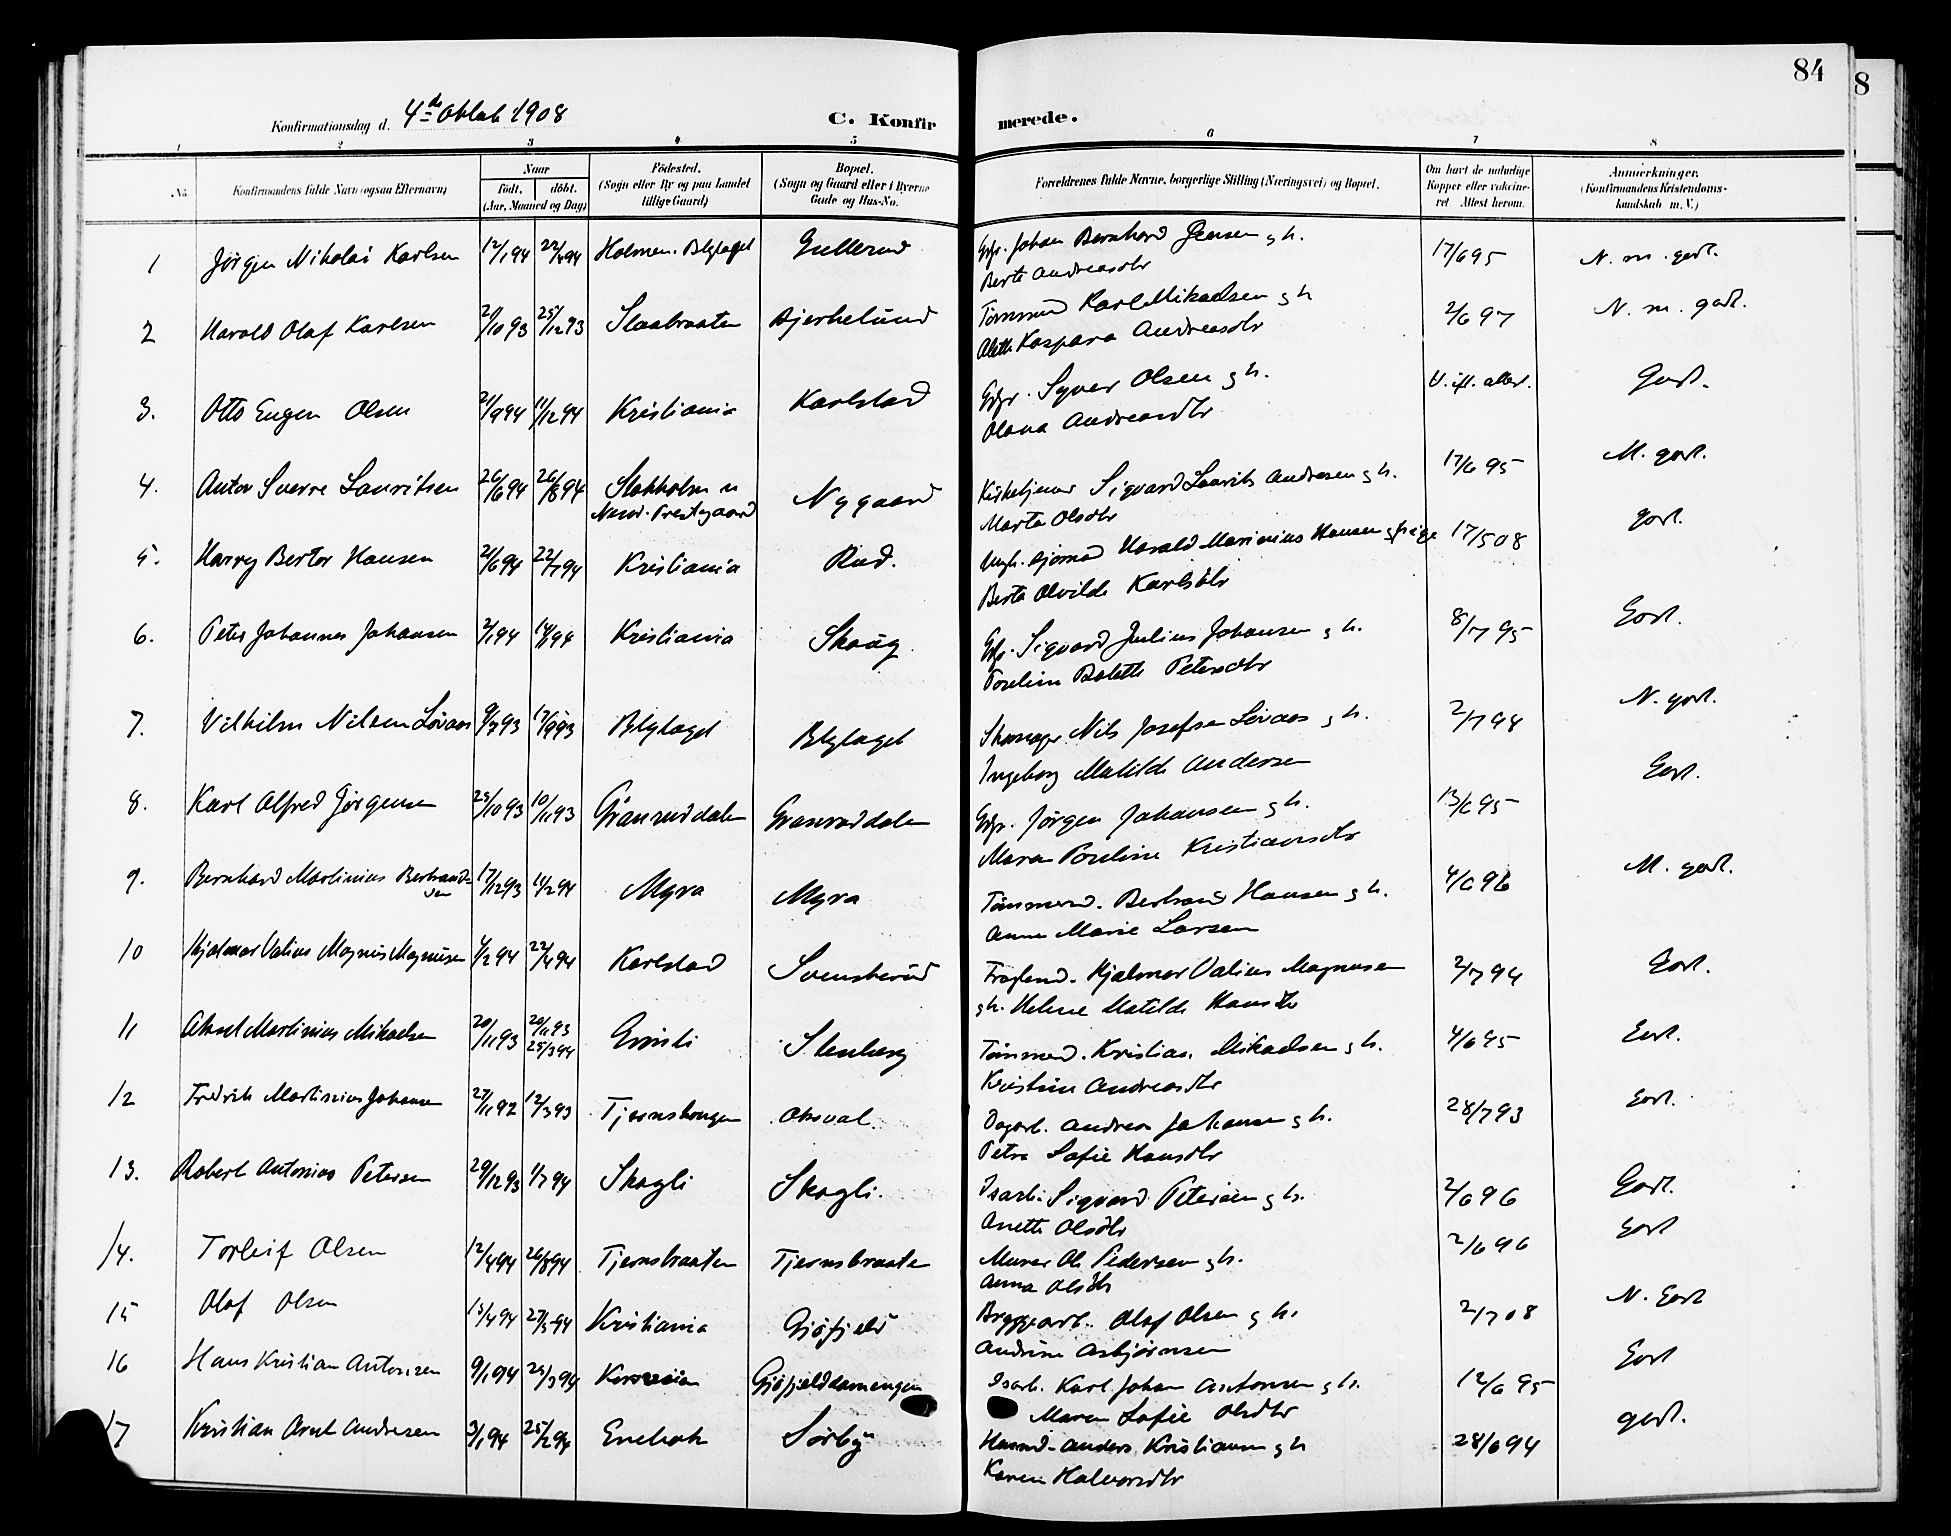 84
8
Konfirmationsdag d. 4de Oktob 1908
C. Konfirmerede.
1 2 3 4 5 6 7 8
No. Konfirmandens fulde Navn (ogsaa Efternavn) Naar født, døbt. (Aar, Maaned og Dag) Fødested. (Sogn eller By og paa Landet tillige Gaard) Bopæl. (Sogn og Gaard eller i Byerne Gade og Hus-No. Forældrenes fulde Navne, borgerlige Stilling (Næringsvei) og Bopæl. Om havt de naturlige Kopper eller vaccineret. Attest herom. Anmærkninger. (Konfirmandens Kristendomskundskab m. V.)
1 Jörgen Nikolai Karlsen 12/1 94 22/4 94 Holmen. Blylaget Gullerud Gbr. Johan Bernhard Jensen g h. 17/6 95 N. m. godt.
Berte Andreasdtr
2 Harald Olaf Karlsen 21/10 93 25/12 93 Slaabraaten Bjerkelund Tömmermd Karl Mikaelsen g h 2/6 97 N. m. godt.
Alette Kaspara Andreasdtr
3. Otto Eugen Olsen 21/9 94 11/12 94 Kristiania Karlstad Gbr. Syver Olsen g h. V. ifl. attest. Godt.
Olava Andreasdtr
4. Anton Sverre Lauritsen 26/6 94 26/8 94 Stokholm u Nesod. Prestegaard Nygaard Kirketjener Sigvard Laurits Andresen g h. 17/6 95 M. godt.
Marta Olsdtr
5. Harry Berter Hansen 21/6 94 22/7 94 Kristiania Rud. Ungk. Harald Marinius Hansen g pige 17/5 08 godt.
Berta Olvilde Karlsdtr
6. Peter Johannes Johansen 2/1 94 Kristiania Skoug. Gbr. Sigvard Julius Johansen g h. 8/7 95 Godt.
Pouline Bolette Petersdtr
7. Vilhelm Nilsen Lövaas 9/7 93 17/9 93 Blylaget Blylaget Nils Josefsen Lövaas g h. 2/7 94 N. godt.
Ingeborg Matilde Andersen
8. Karl Alfred Jörgensen 25/10 93 10/11 93 Granruddalen Granruddalen Gbr. Jörgen Johansen g h. 13/6 95 Godt.
Maren Pouline Kristiansdtr
9. Bernhard Martinius Bertrandsen 17/12 93 11/2 94 Myra Myra Tömmermd. Bertrand Hansen g h. 4/6 96 M. godt.
Anne Marie Larsen
10 Hjalmar Valius Magnus Magnusen 4/2 94 22/4 94 Karlstad Svensterud Hjalmar Valius Magnusen 2/7 94 Godt.
g h. Helene Matilde Hansdtr
11 Aksel Martinius Mikaelsen 20/11 93 20/11 93 25/3 94 Stenberg Tömmermd. Kristian Mikaelsen g h. 4/6 95 Godt.
Kristine Andreasdtr
12 Fredrik Martinius Johansen 27/11 92 12/3 93 Tjernshaugen Oksval. Dagarb. Andreas Johansen g h. 28/7 93 Godt.
Petra Sofie Hansdtr
13. Robert Antonius Petersen 29/12 93 1/7 94 Skogli Skogli. Isarb. Sigvard Petersen g h. 2/6 96 Godt.
Anette Olsdtr
14. Torleif Olsen 12/4 94 26/8 94 Tjernsbraaten Tjernsbraaten Murer Ole Pedersen g h. 2/6 96 Godt
Anna Olsdtr
15 Olaf Olsen 13/4 94 27/5 94 Kristiania Gjöfjeld Bryggearb. Olaf Olsen g h. 2/7 08 N. Godt
Andrine Asbjörnsen
16 Hans Kristian Antonsen 9/1 94 25/3 94 Gjöfjelddamengen Isarb. Karl Johan Antonsen g h. 12/6 95 Godt
Maren Sofie Olsdtr
17 Kristian Arnt Andresen 3/1 94 25/2 94 Enebak Sörby Anders Kristiansen g h 28/6 94 godt.
Karen Halvorsdtr